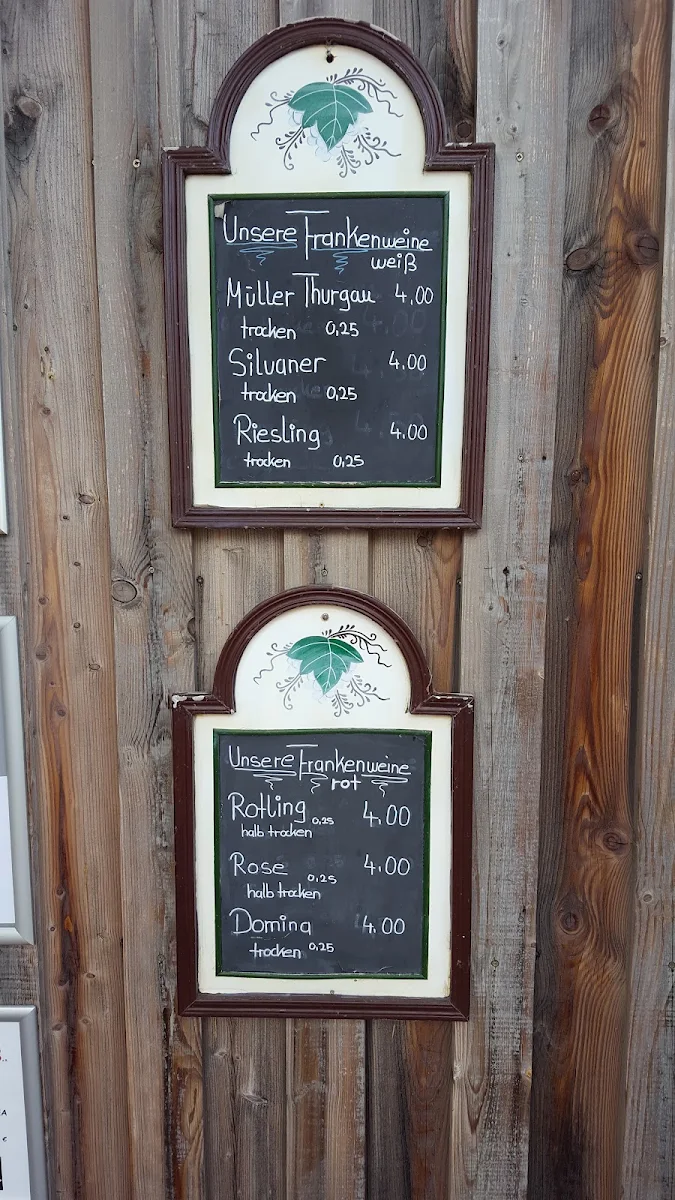 Unsere Frankenweine
weiß
Müller Thurgau 4.00
trocken 0,25
Silvaner 4.00
trocken 0,25
Riesling 4.00
trocken 0,25
Unsere Frankenweine
rot
Rotling 0,25 4.00
halb trocken
Rose 0,25 4.00
halb trocken
Domina 4.00
trocken 0,25
A
€